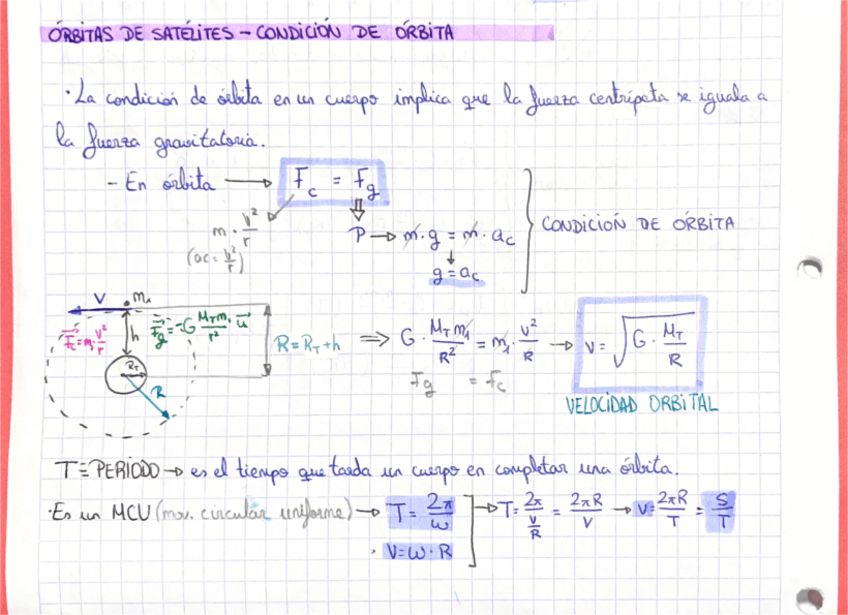 ÓRBITAS DE SATÉLITES - CONDICIÓN DE ÓRBITA
· La condición de órbita en un cuerpo implica que la fuerza centrípeta se iguala a
la fuerza gravitatoria.
- En órbita → F_c = F_g
m · v²/r
(ac = v²/r)
P → m·g = m·a_c
g = a_c
CONDICIÓN DE ÓRBITA
V
m₁
F_c = m₁ v²/r
h
F_g = -G M_T m₁/r² · u
R_T
R
R = R_T + h
⇒ G · M_T m₁/R² = m₁ · v²/R → v = √(G · M_T/R)
Fg = Fc
VELOCIDAD ORBITAL
T ≡ PERIODO → es el tiempo que tarda un cuerpo en completar una órbita.
· Es un MCU (mov. circular uniforme) → T = 2π/ω → T = 2π/(v/R) = 2πR/v → v = 2πR/T = S/T
· V = ω · R